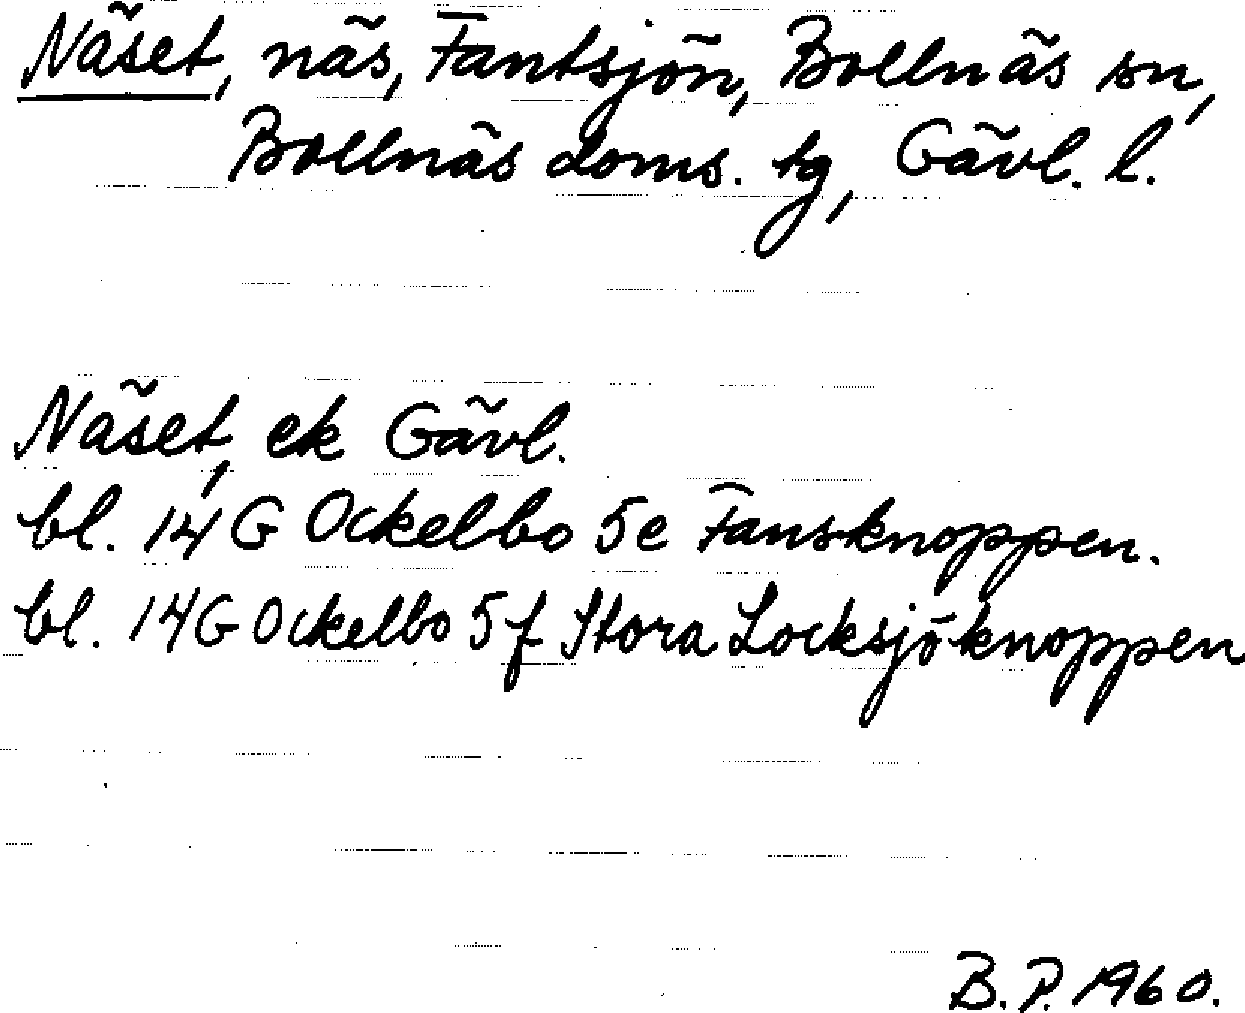 Näset, näs, Fantsjön, Bollnäs sn,
Bollnäs doms. tg, Gävl. l.
Näset, ek Gävl.
bl. 14 G Ockelbo 5e Fansknoppen.
bl. 14G Ockelbo 5f Stora Locksjöknoppen
B. P. 1960.